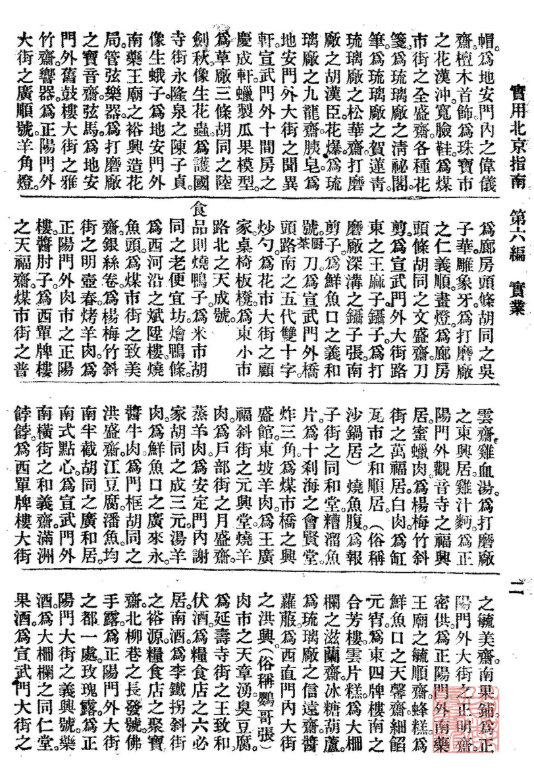 實用北京指南　第六編　實業　二
帽。爲地安門內之偉儀
齋。檀木首飾爲珠寶市
之花漢沖。寬臉鞋爲煤
市街之全盛齋。各種花
箋。爲琉璃廠之清祕閣。
筆。爲琉璃廠之賀蓮青。
琉璃廠之松華齋。打磨
廠之胡漢臣。花爆爲琉
璃廠之九龍齋。胰皂爲
地安門外大街之聞異
軒。宣武門外十間房之
慶成軒。蠟製瓜果模型
爲草廠三條胡同之陸
劍秋。像生花蟲爲護國
寺街永隆泉之陳子貞。
像生蛾子爲地安門外
南藥王廟之裕興。造花
局管弦樂器爲打磨廠
之寶音齋。弦馬爲地安
門外舊鼓樓大街之雅
竹齋。響器爲正陽門外
大街之廣順號。羊角燈。
爲廊房頭條胡同之吳
子華。雕象牙爲打磨廠
之仁義順。畫燈爲廊房
頭條胡同之文盛齋。刀
剪爲宣武門外大街路
東之王麻子。鑷子爲打
磨廠深溝之鑷子張。南
剪子爲鮮魚口之義和
號。廚茶刀爲宣武門外橋
頭路南之五代雙十字。
炒勺爲花市大街之顧
家。桌椅板櫈爲東小市
路北之天成號。
食品則燒鴨子爲米市胡
同之老便宜坊。燴鴨條。
爲西河沿之斌陞樓。燒
魚頭爲煤市街之致美
齋。銀絲卷爲楊梅竹斜
街之明壺春。烤羊肉爲
正陽門外肉市之正陽
樓。醬肘子爲西單牌樓
之天福齋。煤市街之普
雲齋。雞血湯爲打磨廠
之東興居。雞汁麫爲正
陽門外觀音寺之福興
居。蜜蠟肉爲楊梅竹斜
街之萬福居。白肉爲缸
瓦市之和順居。(俗稱
沙鍋居)燒魚腹爲報
子街之同和堂。糟溜魚
片爲十刹海之會賢堂。
炸三角爲煤市橋之興
盛館。東坡羊肉爲王廣
福斜街之元興堂。燒羊
肉爲戶部街之月盛齋。
蒸羊肉爲安定門內謝
家胡同之成三元。湯羊
肉爲鮮魚口之廣來永。
醬牛肉爲門框胡同之
洪盛齋。江豆腐潘魚均
南半截胡同之廣和居。
南式點心爲宣武門外
南橫街之和義齋。滿洲
餑餑爲西單牌樓大街
之毓美齋。南果鋪爲正
陽門外大街之正明齋。
密供爲正陽門外南藥
王廟之毓順齋。蜂糕爲
鮮魚口之天馨齋。細餡
元宵爲東四牌樓南之
合芳樓。雲片糕爲大柵
欄之滋蘭齋。冰糖葫蘆
爲琉璃廠之信遠齋。醬
蘿菔爲西直門內大街
之洪興。(俗稱鸚哥張)
肉市之天章湧。臭豆腐
爲延壽寺街之王致和。
伏酒爲糧食店之六必
居。南酒爲李鐵拐斜街
之裕源。糧食店之聚寶
齋。北柳巷之長發號。佛
手露爲正陽門外大街
之都一處。玫瑰露爲正
陽門大街之義興號。藥
酒爲大柵欄之同仁堂。
果酒爲宣武門大街之